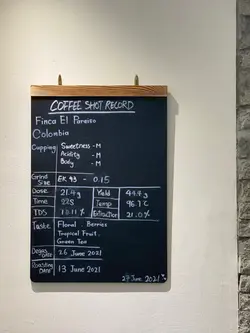 COFFEE SHOT RECORD
Finca El Paraiso
Colombia
Cupping Sweetness - M
Acidity - M
Body - M
Grind Size EK 43 - 0.15
Dose 21.4g Yield 44.4g
Time 22S Temp 96.1°C
TDS 10.11% Extraction 21.0%
Taste Floral . Berries
Tropical Fruit .
Green Tea
Degas DATE 26 June 2021
Roasting DATE 13 June 2021
27 June 2021